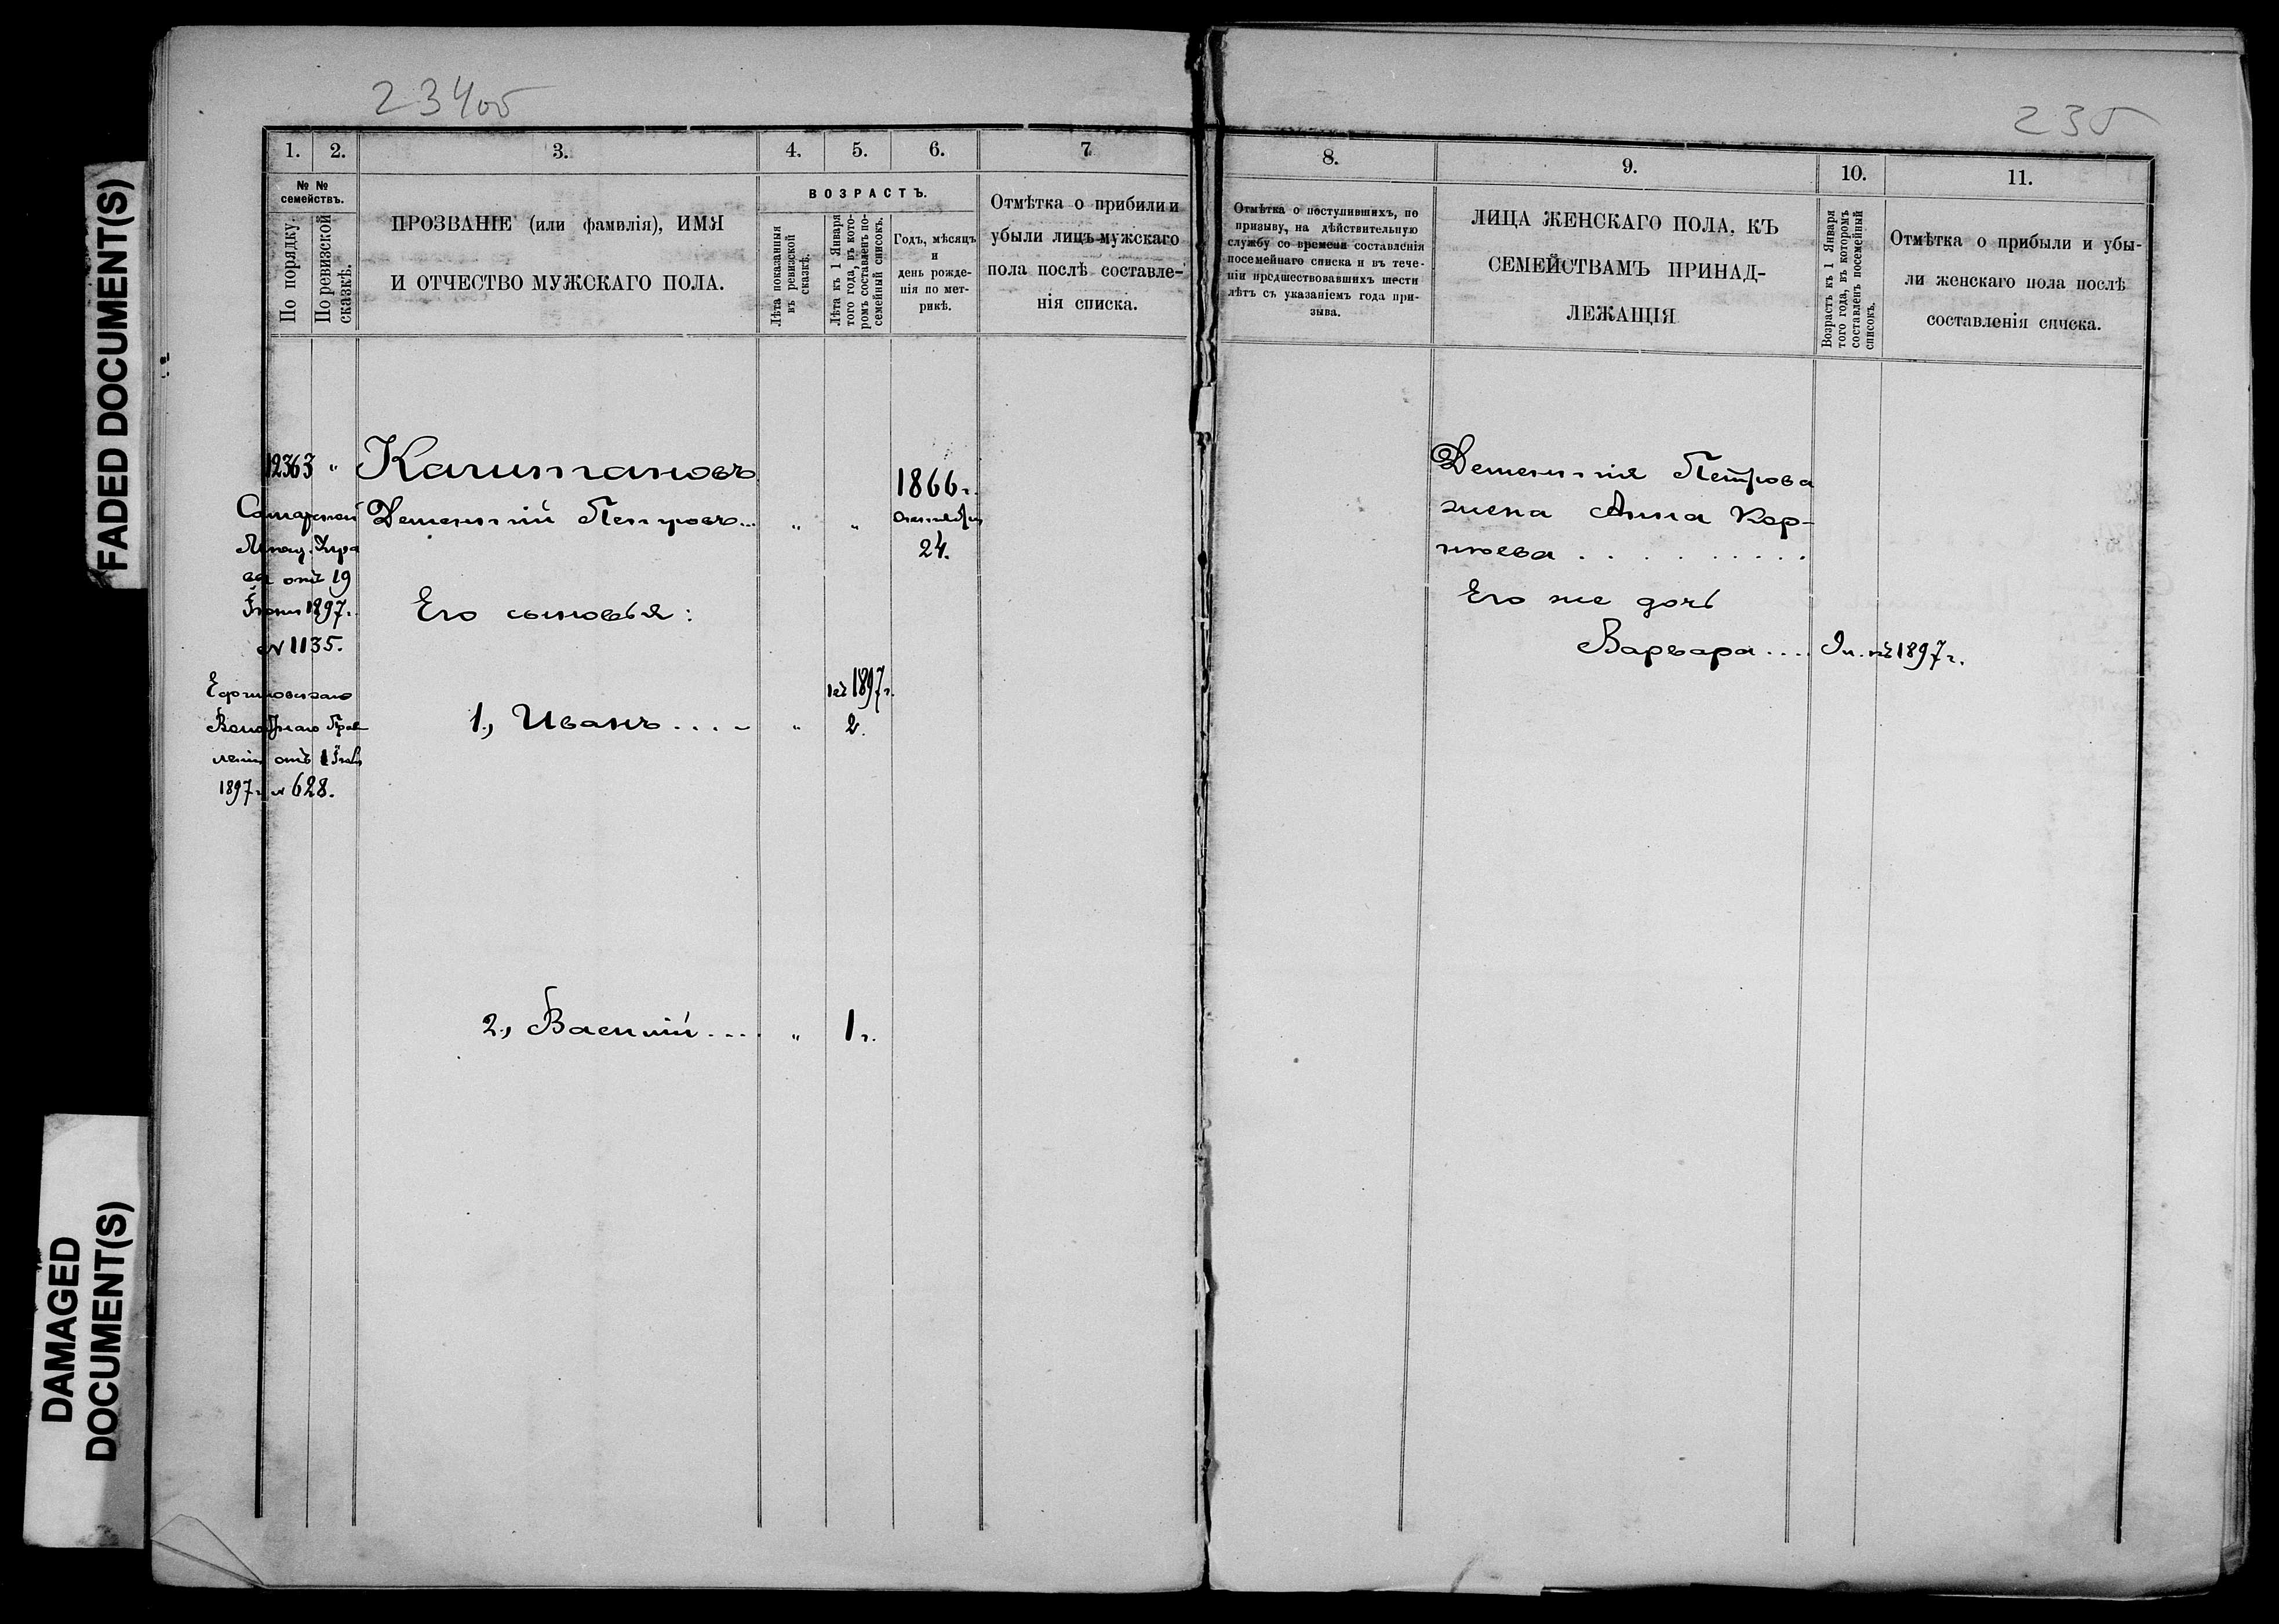 FADED DOCUMENT(S)
DAMAGED
DOCUMENT(S)
234об
1. 2. 3. 4. 5. 6. 7
№ №
семействъ.
По порядку.
По ревизской
сказкѣ.
ПРОЗВАНІЕ (или фамилія), ИМЯ
И ОТЧЕСТВО МУЖСКАГО ПОЛА.
ВОЗРАСТЪ.
Лѣта показанныя
въ ревизской
сказкѣ.
Лѣта къ 1 Января
того года, въ кото-
ромъ составленъ по-
семейный списокъ.
Годъ, мѣсяцъ
и
день рожде-
нія по мет-
рикѣ.
Отмѣтка о прибыли и
убыли лицъ мужскаго
пола послѣ составле-
нія списка.
12363 " Капитановъ
Дементій Петровъ... " "
1866 г.
Сентября
24.
Самарской
Мѣщ. Упра
вы отъ 19
Іюня 1897 г.
№ 1135.
Его сыновья:
Волостнаго Прав
ленія отъ 1 Іюня
1897 г. № 628.
къ 1897 г.
1., Иванъ.... " 2.
2., Василій.... " 1 г.
235
8. 9. 10. 11.
Отмѣтка о поступившихъ, по
призыву, на дѣйствительную
службу со времени составленія
посемейнаго списка и въ тече-
ніи предшествовавшихъ шести
лѣтъ съ указаніемъ года при-
зыва.
ЛИЦА ЖЕНСКАГО ПОЛА, КЪ
СЕМЕЙСТВАМЪ ПРИНАД-
ЛЕЖАЩІЯ
Возрастъ къ 1 Января
того года, въ которомъ
составленъ посемейный
списокъ.
Отмѣтка о прибыли и убы-
ли женскаго пола послѣ
составленія списка.
Дементія Петрова
жена Анна Кор-
нѣева . . . . . . . . .
Его же дочь
Варвара.... 9 л. къ 1897 г.